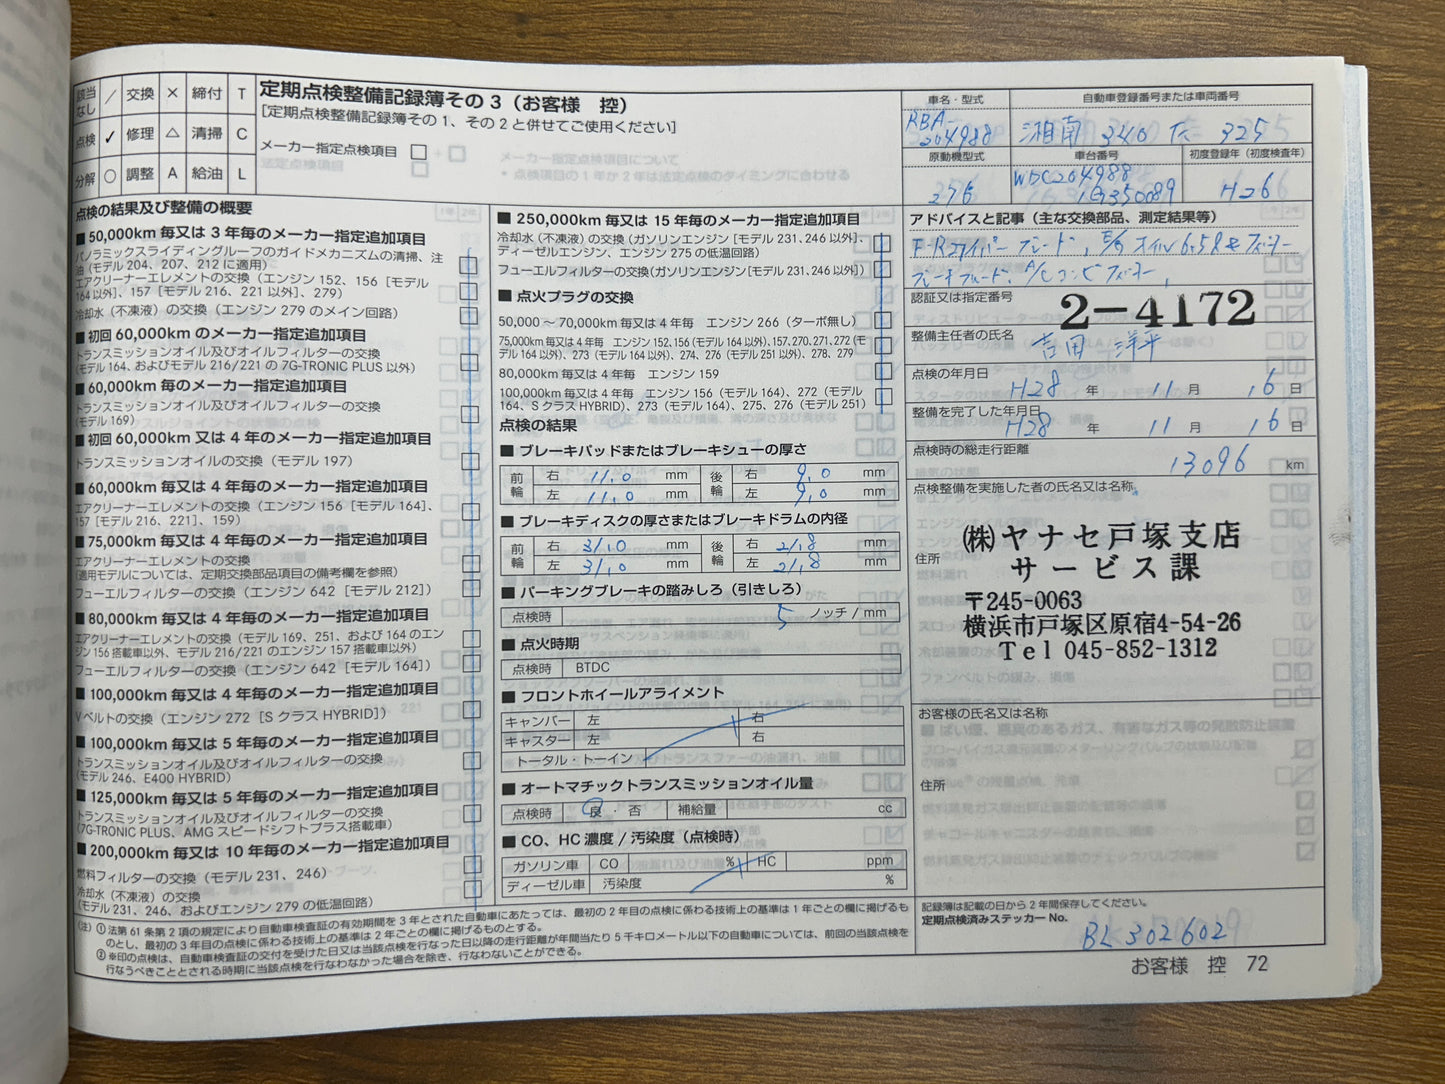 該当なし / 交換 × 締付 T
点検 ✓ 修理 △ 清掃 C
分解 ○ 調整 A 給油 L
定期点検整備記録簿その3（お客様 控）
[定期点検整備記録簿その1、その2と併せてご使用ください]
メーカー指定点検項目 □
点検の結果及び整備の概要
■ 50,000km 毎又は 3 年毎のメーカー指定追加項目
パノラミックスライディングルーフのガイドメカニズムの清掃、注
油（モデル 204、207、212 に適用）
エアクリーナーエレメントの交換（エンジン 152、156［モデル
164 以外］、157［モデル 216、221 以外］、279）
冷却水（不凍液）の交換（エンジン 279 のメイン回路）
■ 初回 60,000km のメーカー指定追加項目
トランスミッションオイル及びオイルフィルターの交換
（モデル 164、およびモデル 216/221 の 7G-TRONIC PLUS 以外）
■ 60,000km 毎のメーカー指定追加項目
トランスミッションオイル及びオイルフィルターの交換
（モデル 169）
■ 初回 60,000km 又は 4 年毎のメーカー指定追加項目
トランスミッションオイルの交換（モデル 197）
■ 60,000km 毎又は 4 年毎のメーカー指定追加項目
エアクリーナーエレメントの交換（エンジン 156［モデル 164］、
157［モデル 216、221］、159）
■ 75,000km 毎又は 4 年毎のメーカー指定追加項目
エアクリーナーエレメントの交換
（適用モデルについては、定期交換部品項目の備考欄を参照）
フューエルフィルターの交換（エンジン 642［モデル 212］）
■ 80,000km 毎又は 4 年毎のメーカー指定追加項目
エアクリーナーエレメントの交換（モデル 169、251、および 164 のエン
ジン 156 搭載車以外、モデル 216/221 のエンジン 157 搭載車以外）
フューエルフィルターの交換（エンジン 642［モデル 164］）
■ 100,000km 毎又は 4 年毎のメーカー指定追加項目
V ベルトの交換（エンジン 272［S クラス HYBRID］）
■ 100,000km 毎又は 5 年毎のメーカー指定追加項目
トランスミッションオイル及びオイルフィルターの交換
（モデル 246、E400 HYBRID）
■ 125,000km 毎又は 5 年毎のメーカー指定追加項目
トランスミッションオイル及びオイルフィルターの交換
（7G-TRONIC PLUS、AMG スピードシフトプラス搭載車）
■ 200,000km 毎又は 10 年毎のメーカー指定追加項目
燃料フィルターの交換（モデル 231、246）
冷却水（不凍液）の交換
（モデル 231、246、およびエンジン 279 の低温回路）
■ 250,000km 毎又は 15 年毎のメーカー指定追加項目
冷却水（不凍液）の交換（ガソリンエンジン［モデル 231、246 以外］、
ディーゼルエンジン、エンジン 275 の低温回路）
フューエルフィルターの交換（ガソリンエンジン［モデル 231、246 以外］）
■ 点火プラグの交換
50,000 〜 70,000km 毎又は 4 年毎 エンジン 266（ターボ無し）
75,000km 毎又は 4 年毎 エンジン 152、156（モデル 164 以外）、157、270、271、272（モ
デル 164 以外）、273（モデル 164 以外）、274、276（モデル 251 以外）、278、279
80,000km 毎又は 4 年毎 エンジン 159
100,000km 毎又は 4 年毎 エンジン 156（モデル 164）、272（モデル
164、S クラス HYBRID）、273（モデル 164）、275、276（モデル 251）
点検の結果
■ ブレーキパッドまたはブレーキシューの厚さ
前輪 右 11.0 mm 後輪 右 9.0 mm
左 11.0 mm 左 9.0 mm
■ ブレーキディスクの厚さまたはブレーキドラムの内径
前輪 右 31.0 mm 後輪 右 21.8 mm
左 31.0 mm 左 21.8 mm
■ パーキングブレーキの踏みしろ（引きしろ）
点検時 5 ノッチ / mm
■ 点火時期
点検時 BTDC
■ フロントホイールアライメント
キャンバー 左 右
キャスター 左 右
トータル・トーイン
■ オートマチックトランスミッションオイル量
点検時 良 ・ 否 補給量 cc
■ CO、HC 濃度 / 汚染度（点検時）
ガソリン車 CO % HC ppm
ディーゼル車 汚染度 %
車名・型式
RBA-
204988
自動車登録番号または車両番号
湘南 340 た 325
原動機型式
276
車台番号
WDC204988
1G350089
初度登録年（初度検査年）
H26
アドバイスと記事（主な交換部品、測定結果等）
F・Rワイパーブレード、E/G オイル 6.5ℓ & フィルター
ブレーキフルード、A/C コンビフィルター、
認証又は指定番号
2-4172
整備主任者の氏名
吉田 洋平
点検の年月日
H28 年 11 月 16 日
整備を完了した年月日
H28 年 11 月 16 日
点検時の総走行距離
13096 km
点検整備を実施した者の氏名又は名称
㈱ヤナセ戸塚支店
サービス課
住所
〒245-0063
横浜市戸塚区原宿4-54-26
Tel 045-852-1312
お客様の氏名又は名称
住所
（注）① 法第 61 条第 2 項の規定により自動車検査証の有効期間を 3 年とされた自動車にあたっては、最初の 2 年目の点検に係わる技術上の基準は 1 年ごとの欄に掲げるも
のとし、最初の 3 年目の点検に係わる技術上の基準は 2 年ごとの欄に掲げるものとする。
② ※印の点検は、自動車検査証の交付を受けた日又は当該点検を行なった日以降の走行距離が年間当たり 5 千キロメートル以下の自動車については、前回の当該点検を
行なうべきこととされる時期に当該点検を行なわなかった場合を除き、行なわないことができる。
記録簿は記載の日から 2 年間保存してください。
定期点検済みステッカー No.
BL302602
お客様 控 72